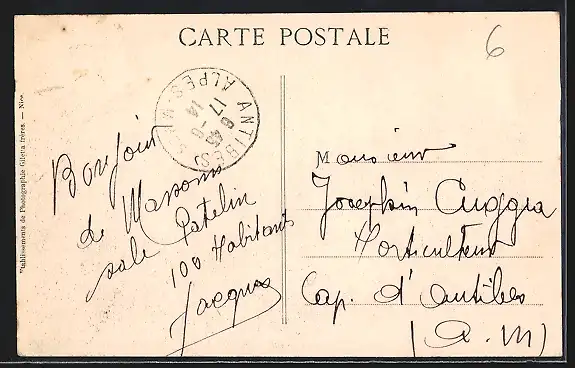 CARTE POSTALE
6
ANTIBES
ALPES-M
17 - 8
14
Etablissements de Photographie Giletta frères. — Nice.
Bonjour
de Massoins
sale Patelin
100 Habitants
Jacques
Monsieur
Josephin Cuggia
Horticulteur
Cap. d'Antibes
(A. M)